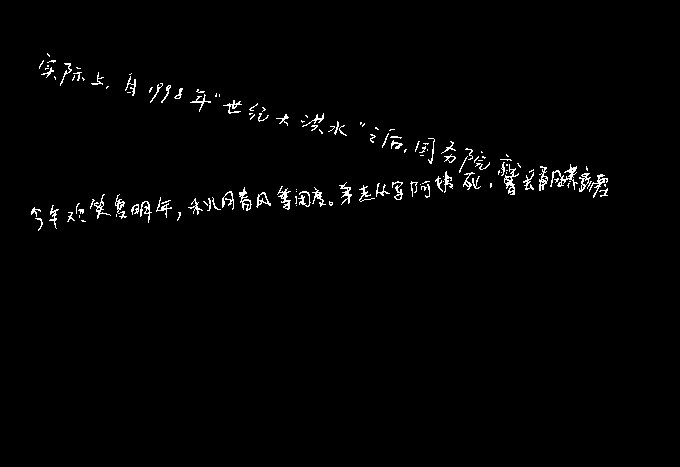 实际上，自1998年"世纪大洪水"之后，国务院就
今年欢笑复明年，秋月春风等闲度。弟走从军阿姨死，